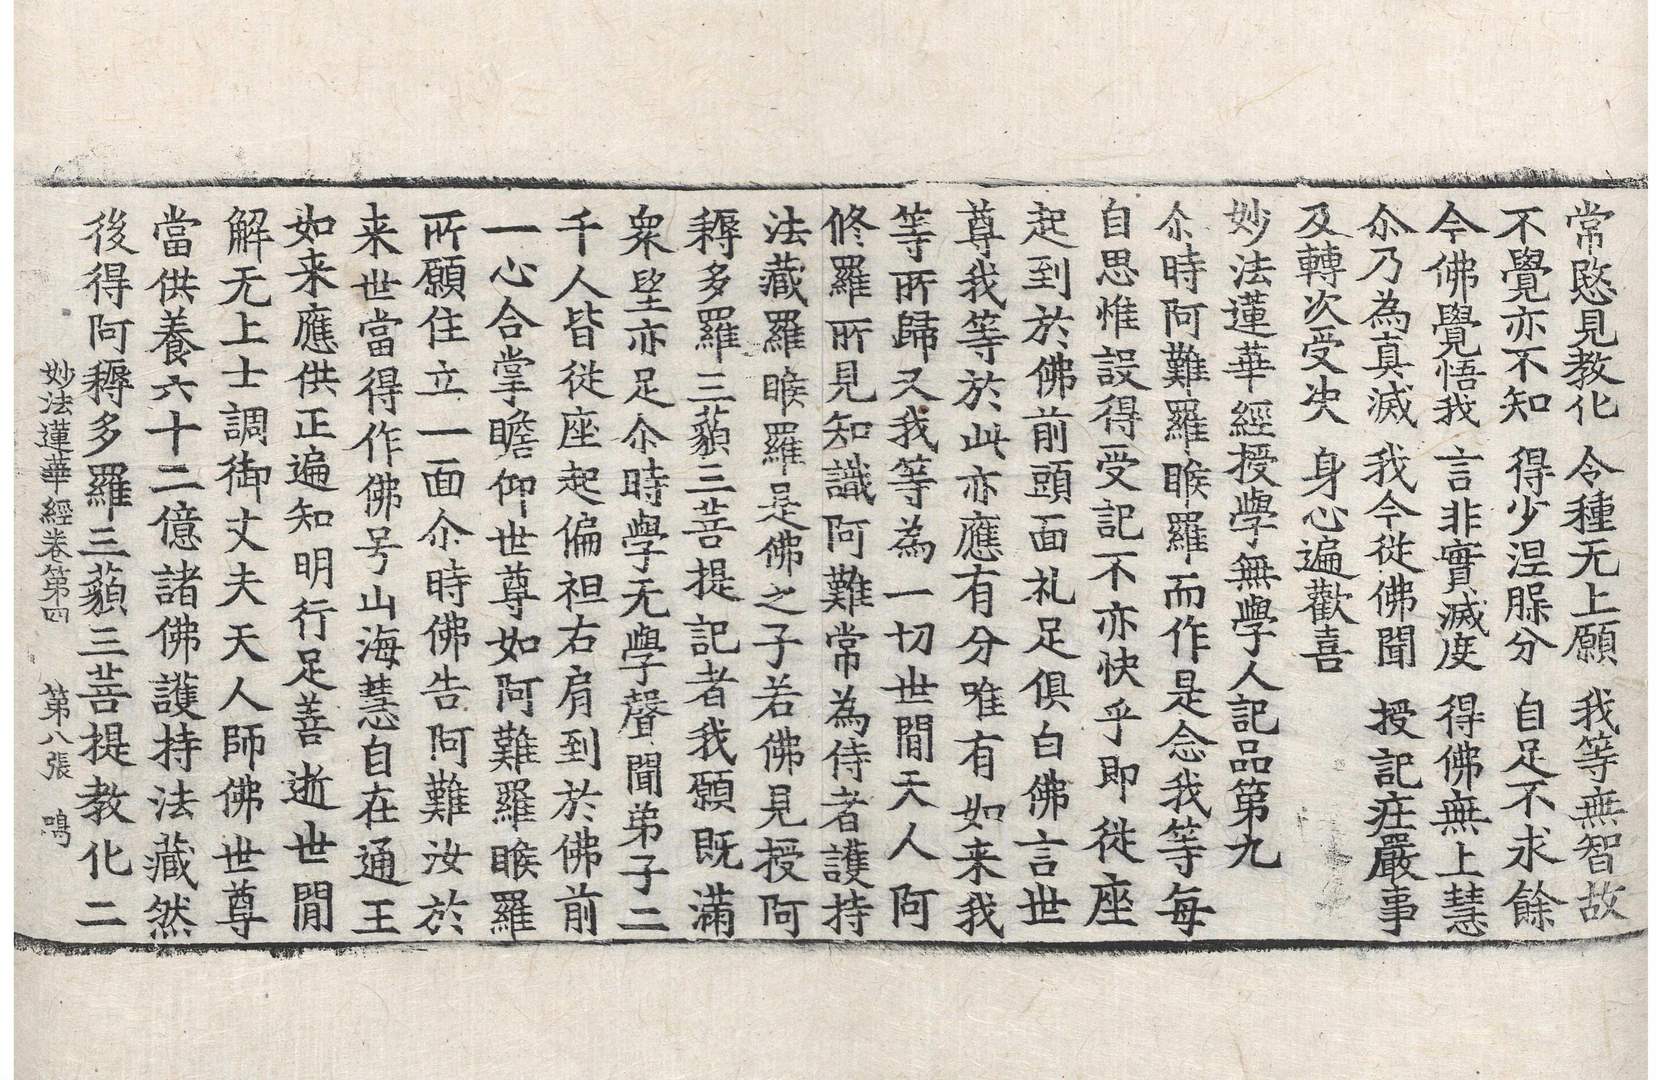 常愍見教化 令種无上願 我等無智故
不覺亦不知 得少涅槃分 自足不求餘
今佛覺悟我 言非實滅度 得佛無上慧
尒乃為真滅 我今從佛聞 授記莊嚴事
及轉次受決 身心遍歡喜
妙法蓮華經授學無學人記品第九
尒時阿難羅睺羅而作是念我等每
自思惟設得受記不亦快乎即從座
起到於佛前頭面礼足俱白佛言世
尊我等於此亦應有分唯有如来我
等所歸又我等為一切世閒天人阿
修羅所見知識阿難常為侍者護持
法藏羅睺羅是佛之子若佛見授阿
耨多羅三藐三菩提記者我願既滿
衆望亦足尒時學无學聲聞弟子二
千人皆從座起偏袒右肩到於佛前
一心合掌瞻仰世尊如阿難羅睺羅
所願住立一面尒時佛告阿難汝於
来世當得作佛号山海慧自在通王
如来應供正遍知明行足善逝世閒
解无上士調御丈夫天人師佛世尊
當供養六十二億諸佛護持法藏然
後得阿耨多羅三藐三菩提教化二
妙法蓮華經卷第四 第八張 鳴